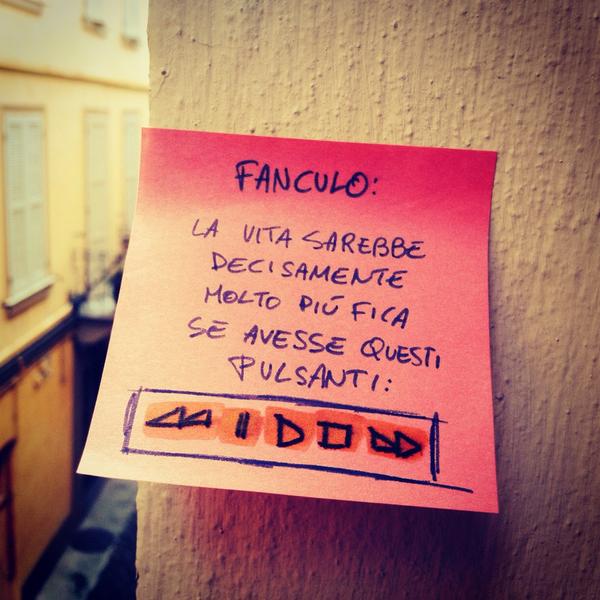 FANCULO:
LA VITA SAREBBE
DECISAMENTE
MOLTO PIÚ FICA
SE AVESSE QUESTI
PULSANTI: